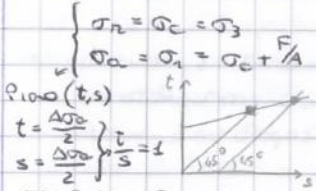 σr = σc = σ3
σa = σ1 = σc + F/A
Piano (t,s)
t = Δσa/2
s = Δσa/2
t/s = 1
t
45°
45°
s